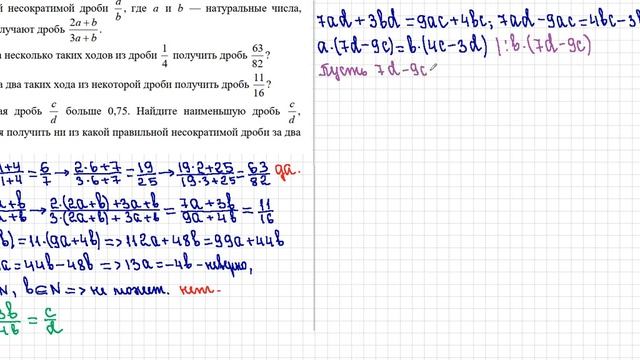 й несократимой дроби a/b, где a и b — натуральные числа,
лучают дробь (2a + b)/(3a + b).
а несколько таких ходов из дроби 1/4 получить дробь 63/82?
а два таких хода из некоторой дроби получить дробь 11/16?
ая дробь c/d больше 0,75. Найдите наименьшую дробь c/d,
я получить ни из какой правильной несократимой дроби за два
1+4/1+4 = 6/7 → (2·6+7)/(3·6+7) = 19/25 → (19·2+25)/(19·3+25) = 63/82 да.
a+b/a+b → (2·(2a+b)+3a+b)/(3·(2a+b)+3a+b) = (7a+3b)/(9a+4b) = 11/16
b) = 11·(9a+4b) => 112a+48b = 99a+44b
a = 44b-48b => 13a = -4b - неверно,
N, b∈N => не может. нет.
3b/4b = c/d
7ad+3bd = 9ac+4bc; 7ad-9ac = 4bc-3b
a·(7d-9c) = b·(4c-3d) |:b·(7d-9c)
Пусть 7d-9c